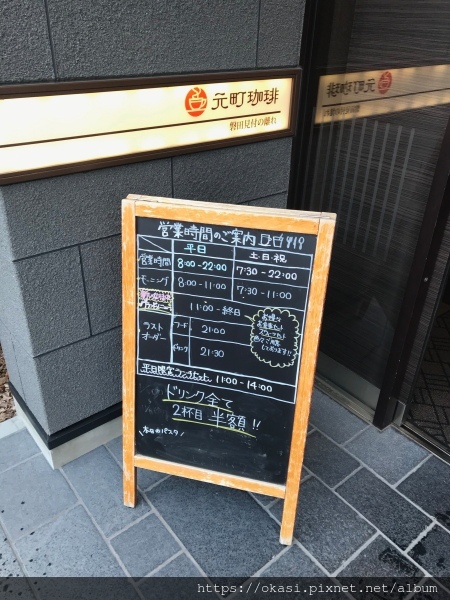 元町珈琲
磐田見付の離れ
元町珈琲
営業時間のご案内
平日
土日・祝
営業時間
8:00-22:00
7:30-22:00
モーニング
8:00-11:00
7:30-11:00
11:00-終日
ラスト
オーダー
フード
21:00
ドリンク
21:30
平日限定 11:00-14:00
ドリンク全て
2杯目 半額!!
本日のパスタ
https://okasi.pixnet.net/album